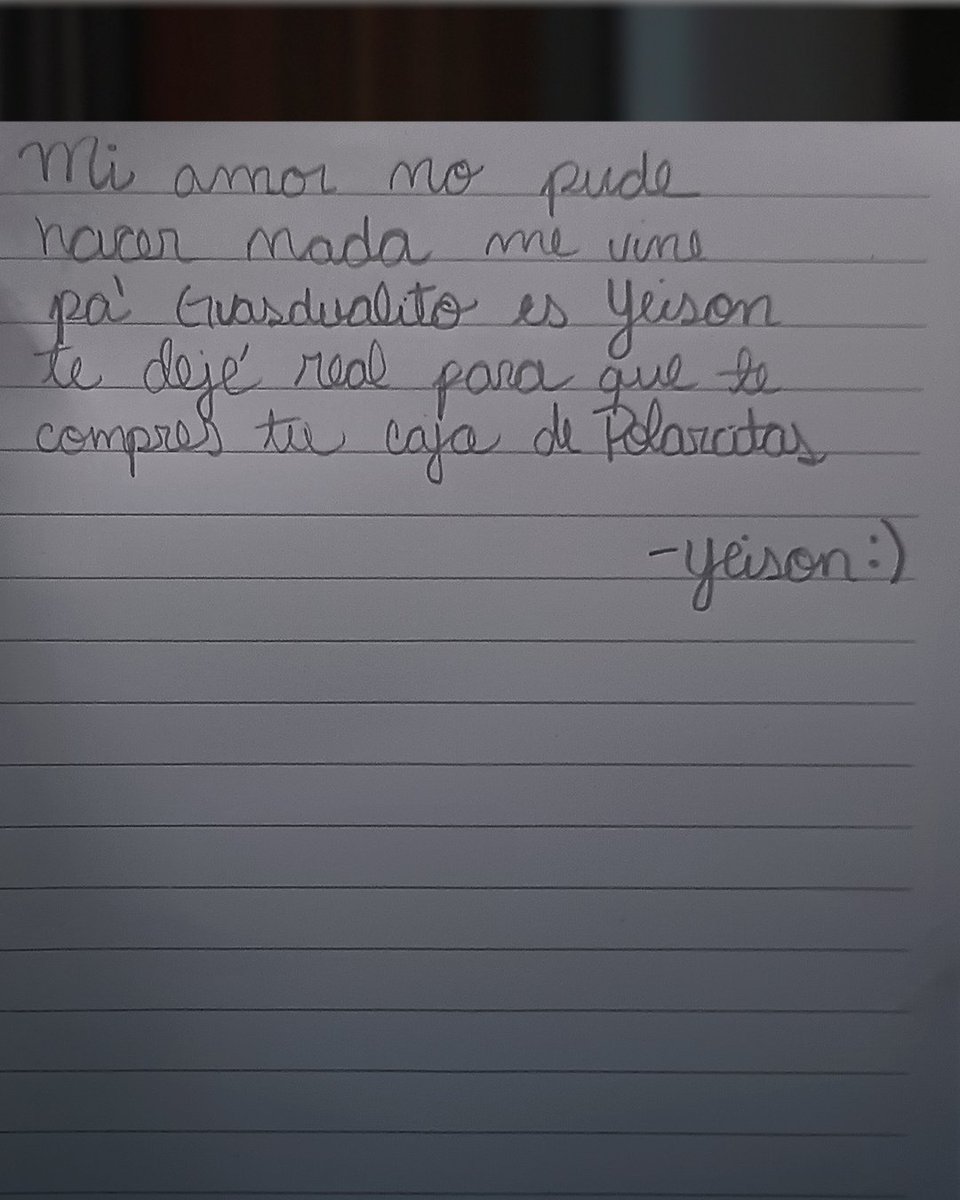 Mi amor no pude
hacer nada me vine
pa' Guasdualito es Yeison
te dejé real para que te
compres tu caja de Polarcitas
-Yeison:)